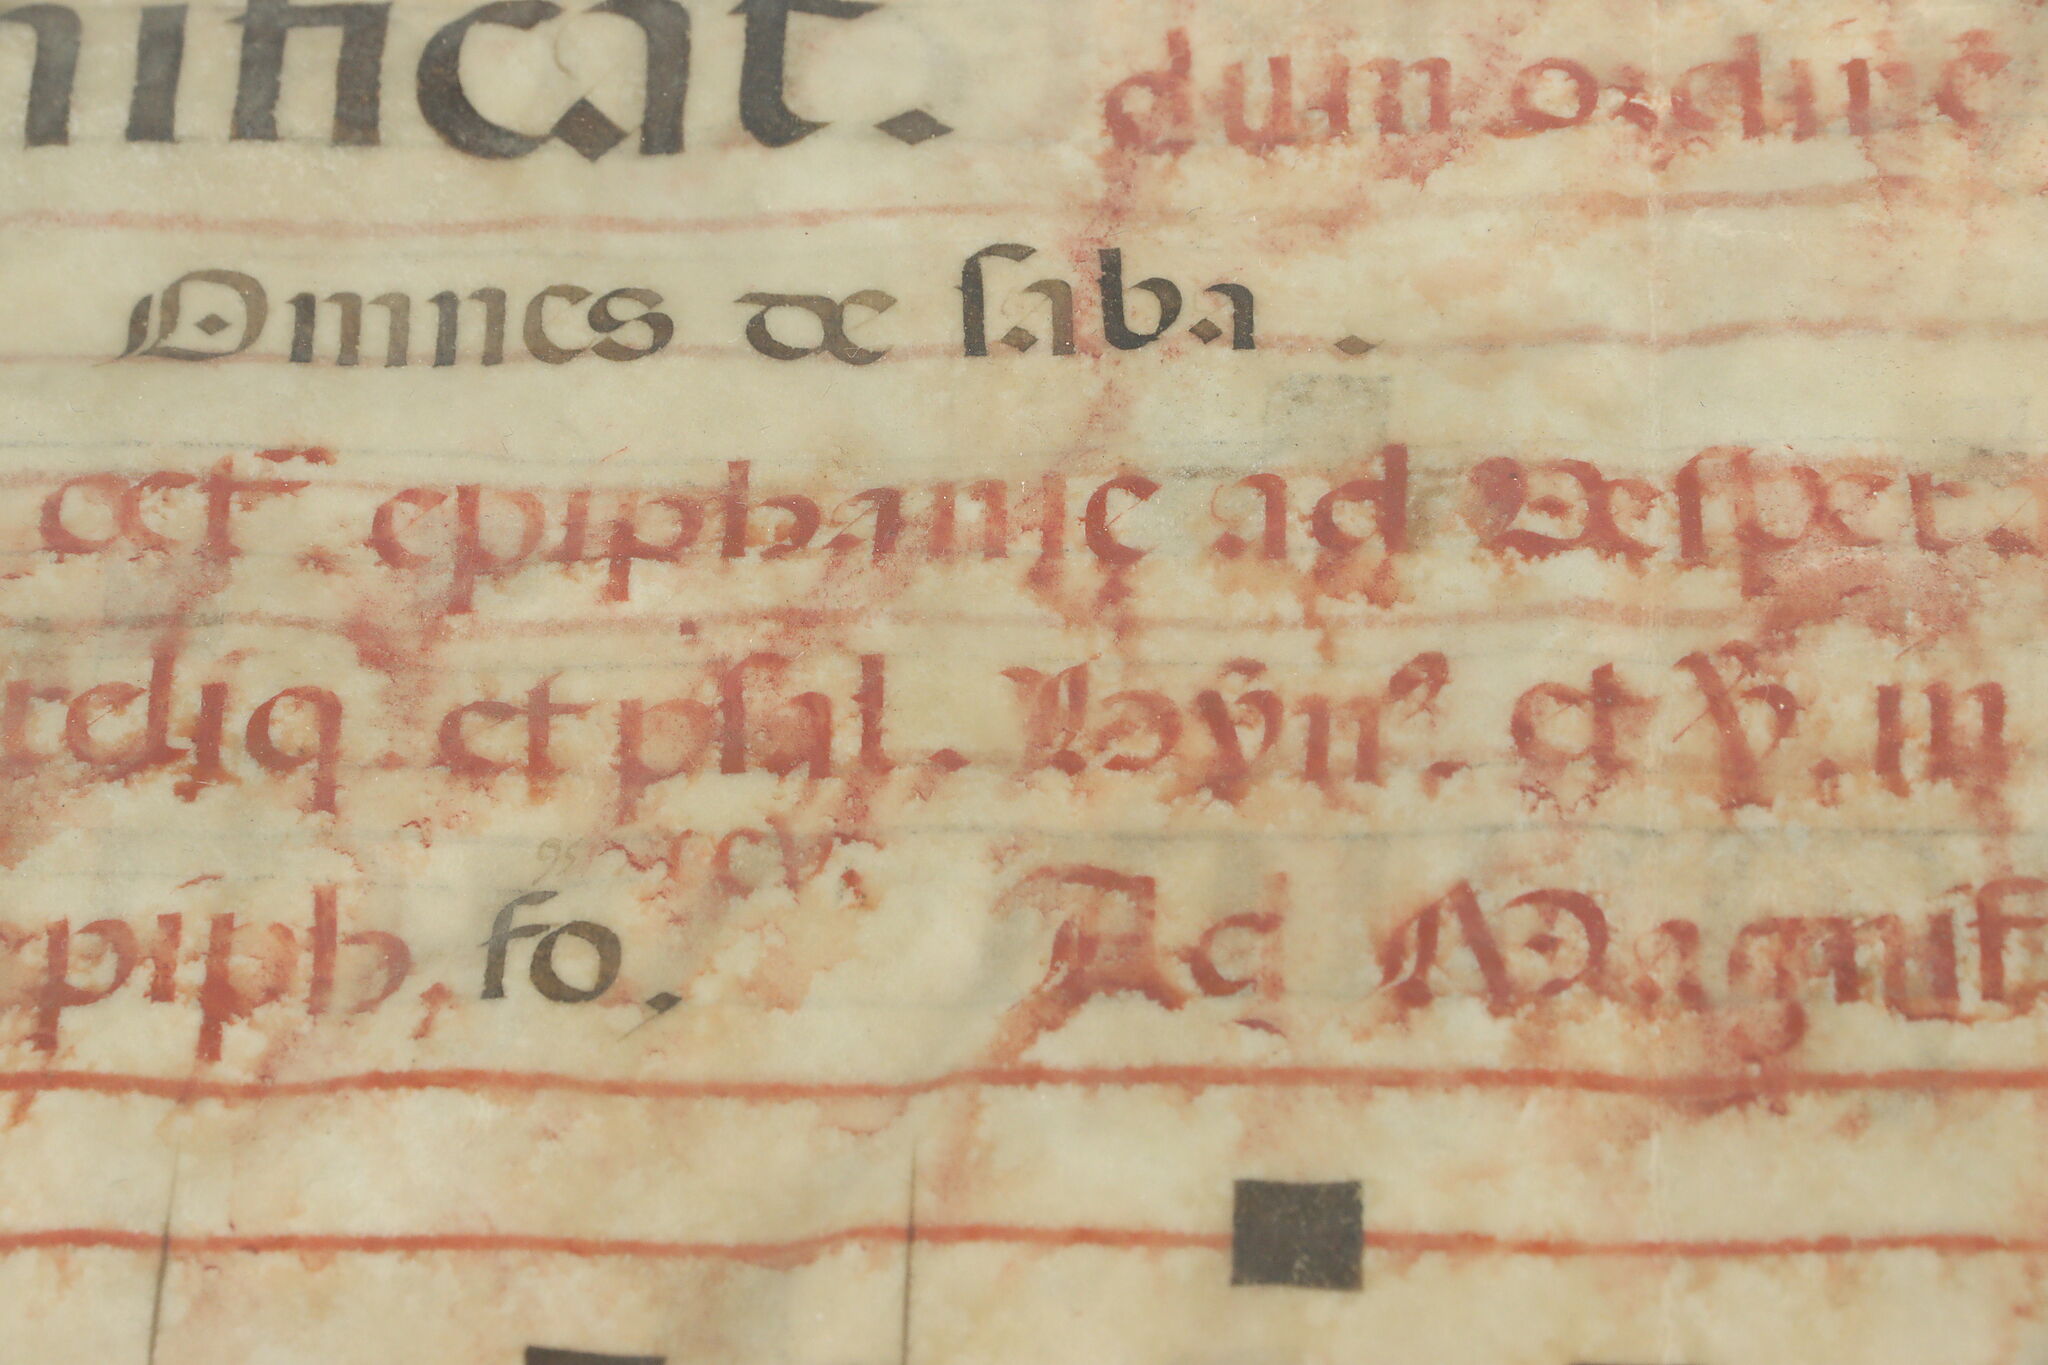 nificat. dum ordinē
Omnes de saba .
oct̄. epiphanię ad Vesperā
reliq. et psal. Hỹn⁹. et ℣. in
xcv.
epiph. fo.
Ad Magnif